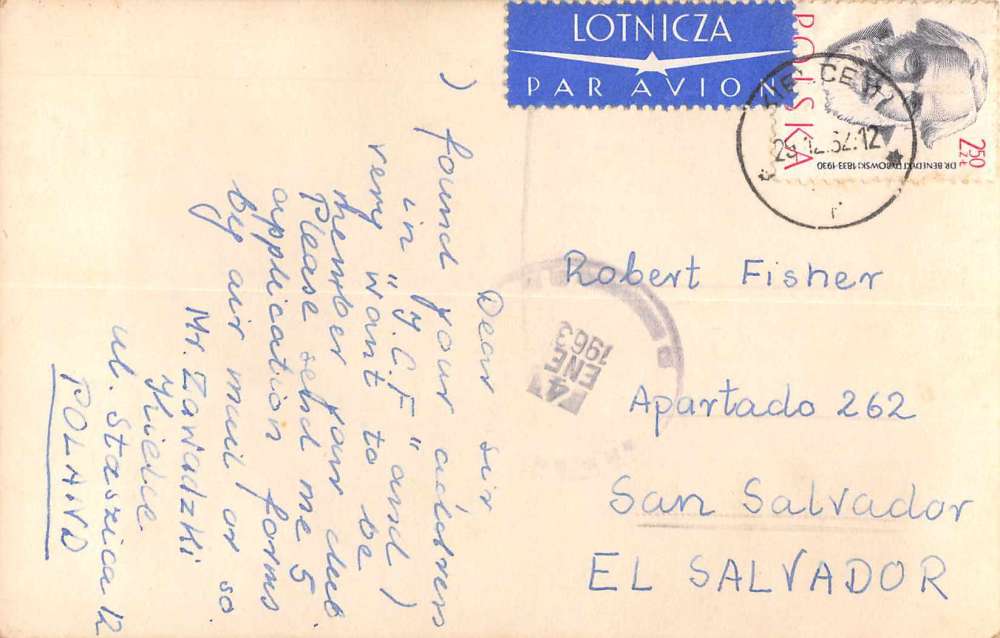 LOTNICZA
PAR AVION
POLSKA
2.50 ZŁ
DR BENEDYKT DYBOWSKI 1833-1930
KIELCE
29.12.62.12
4
ENE
1963
Dear sir
I found your address
in "I.C.F" and I
very want to be
member your club
Please send me 5
application forms
by air mail or so
Mr. Zawadzki
Kielce
ul. Staszica 12
POLAND
Robert Fisher
Apartado 262
San Salvador
EL SALVADOR